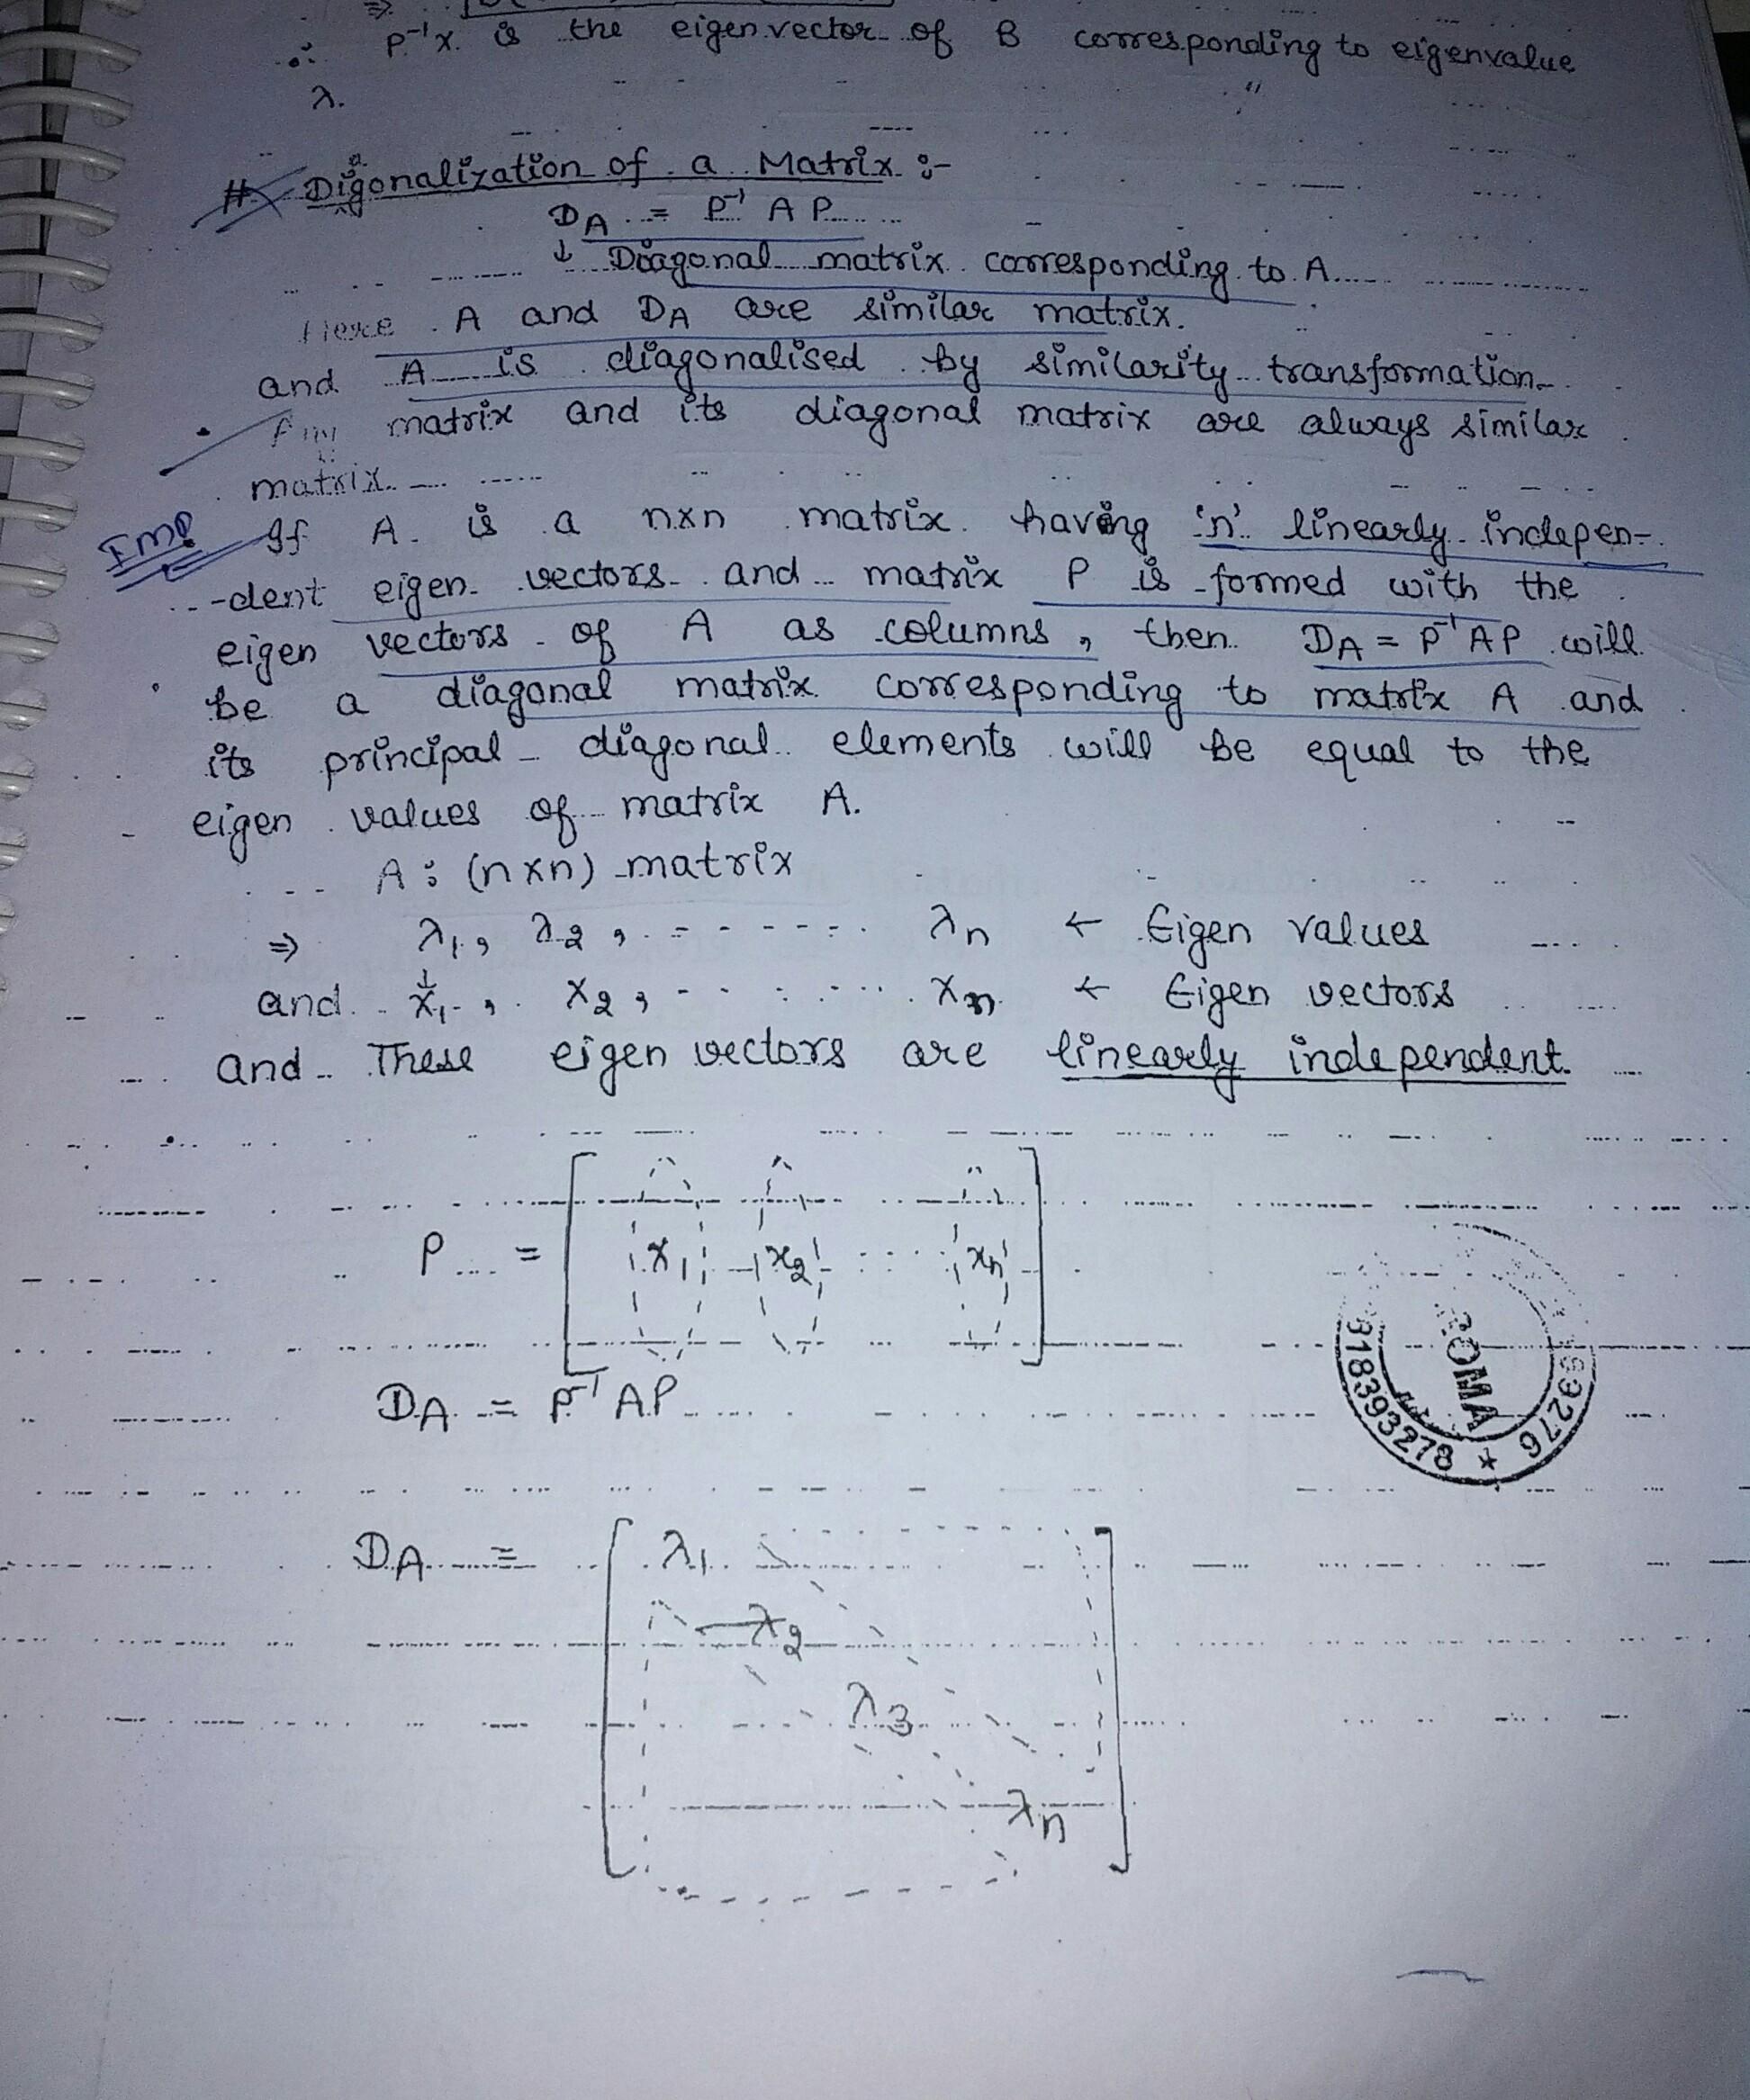 ∴ P⁻¹x is the eigen vector of B corresponding to eigenvalue
λ.
# Diagonalization of a Matrix :-
D_A = P⁻¹ A P
↓ Diagonal matrix corresponding to A
Here A and D_A are similar matrix.
and A is diagonalised by similarity transformation
Any matrix and its diagonal matrix are always similar
matrix.
IMP If A is a n×n matrix having 'n' linearly indepen-
-dent eigen vectors and matrix P is formed with the
eigen vectors of A as columns, then D_A = P⁻¹AP will
be a diagonal matrix corresponding to matrix A and
its principal diagonal elements will be equal to the
eigen values of matrix A.
A : (n×n) matrix
⇒ λ₁, λ₂, ------- λn ← Eigen values
and x₁, x₂, ------- xn ← Eigen vectors
and These eigen vectors are linearly independent.
P = [ x₁ x₂ .... xn ]
D_A = P⁻¹AP
D_A = [ λ₁
λ₂
λ₃
λn ]
ROMA
818393278 * 93276